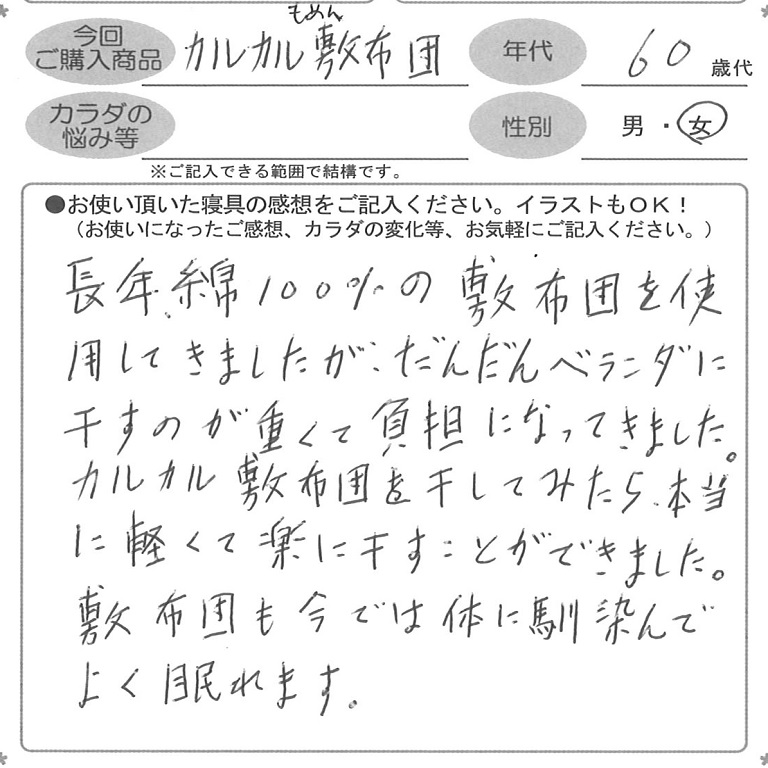 もめん
今回
ご購入商品
カルカル敷布団
年代
60
歳代
カラダの
悩み等
性別
男・女
※ご記入できる範囲で結構です。
●お使い頂いた寝具の感想をご記入ください。イラストもOK！
（お使いになったご感想、カラダの変化等、お気軽にご記入ください。）
長年、綿100%の敷布団を使
用してきましたが、だんだんベランダに
干すのが重くて負担になってきました。
カルカル敷布団を干してみたら、本当
に軽くて楽に干すことができました。
敷布団も今では体に馴染んで
よく眠れます。